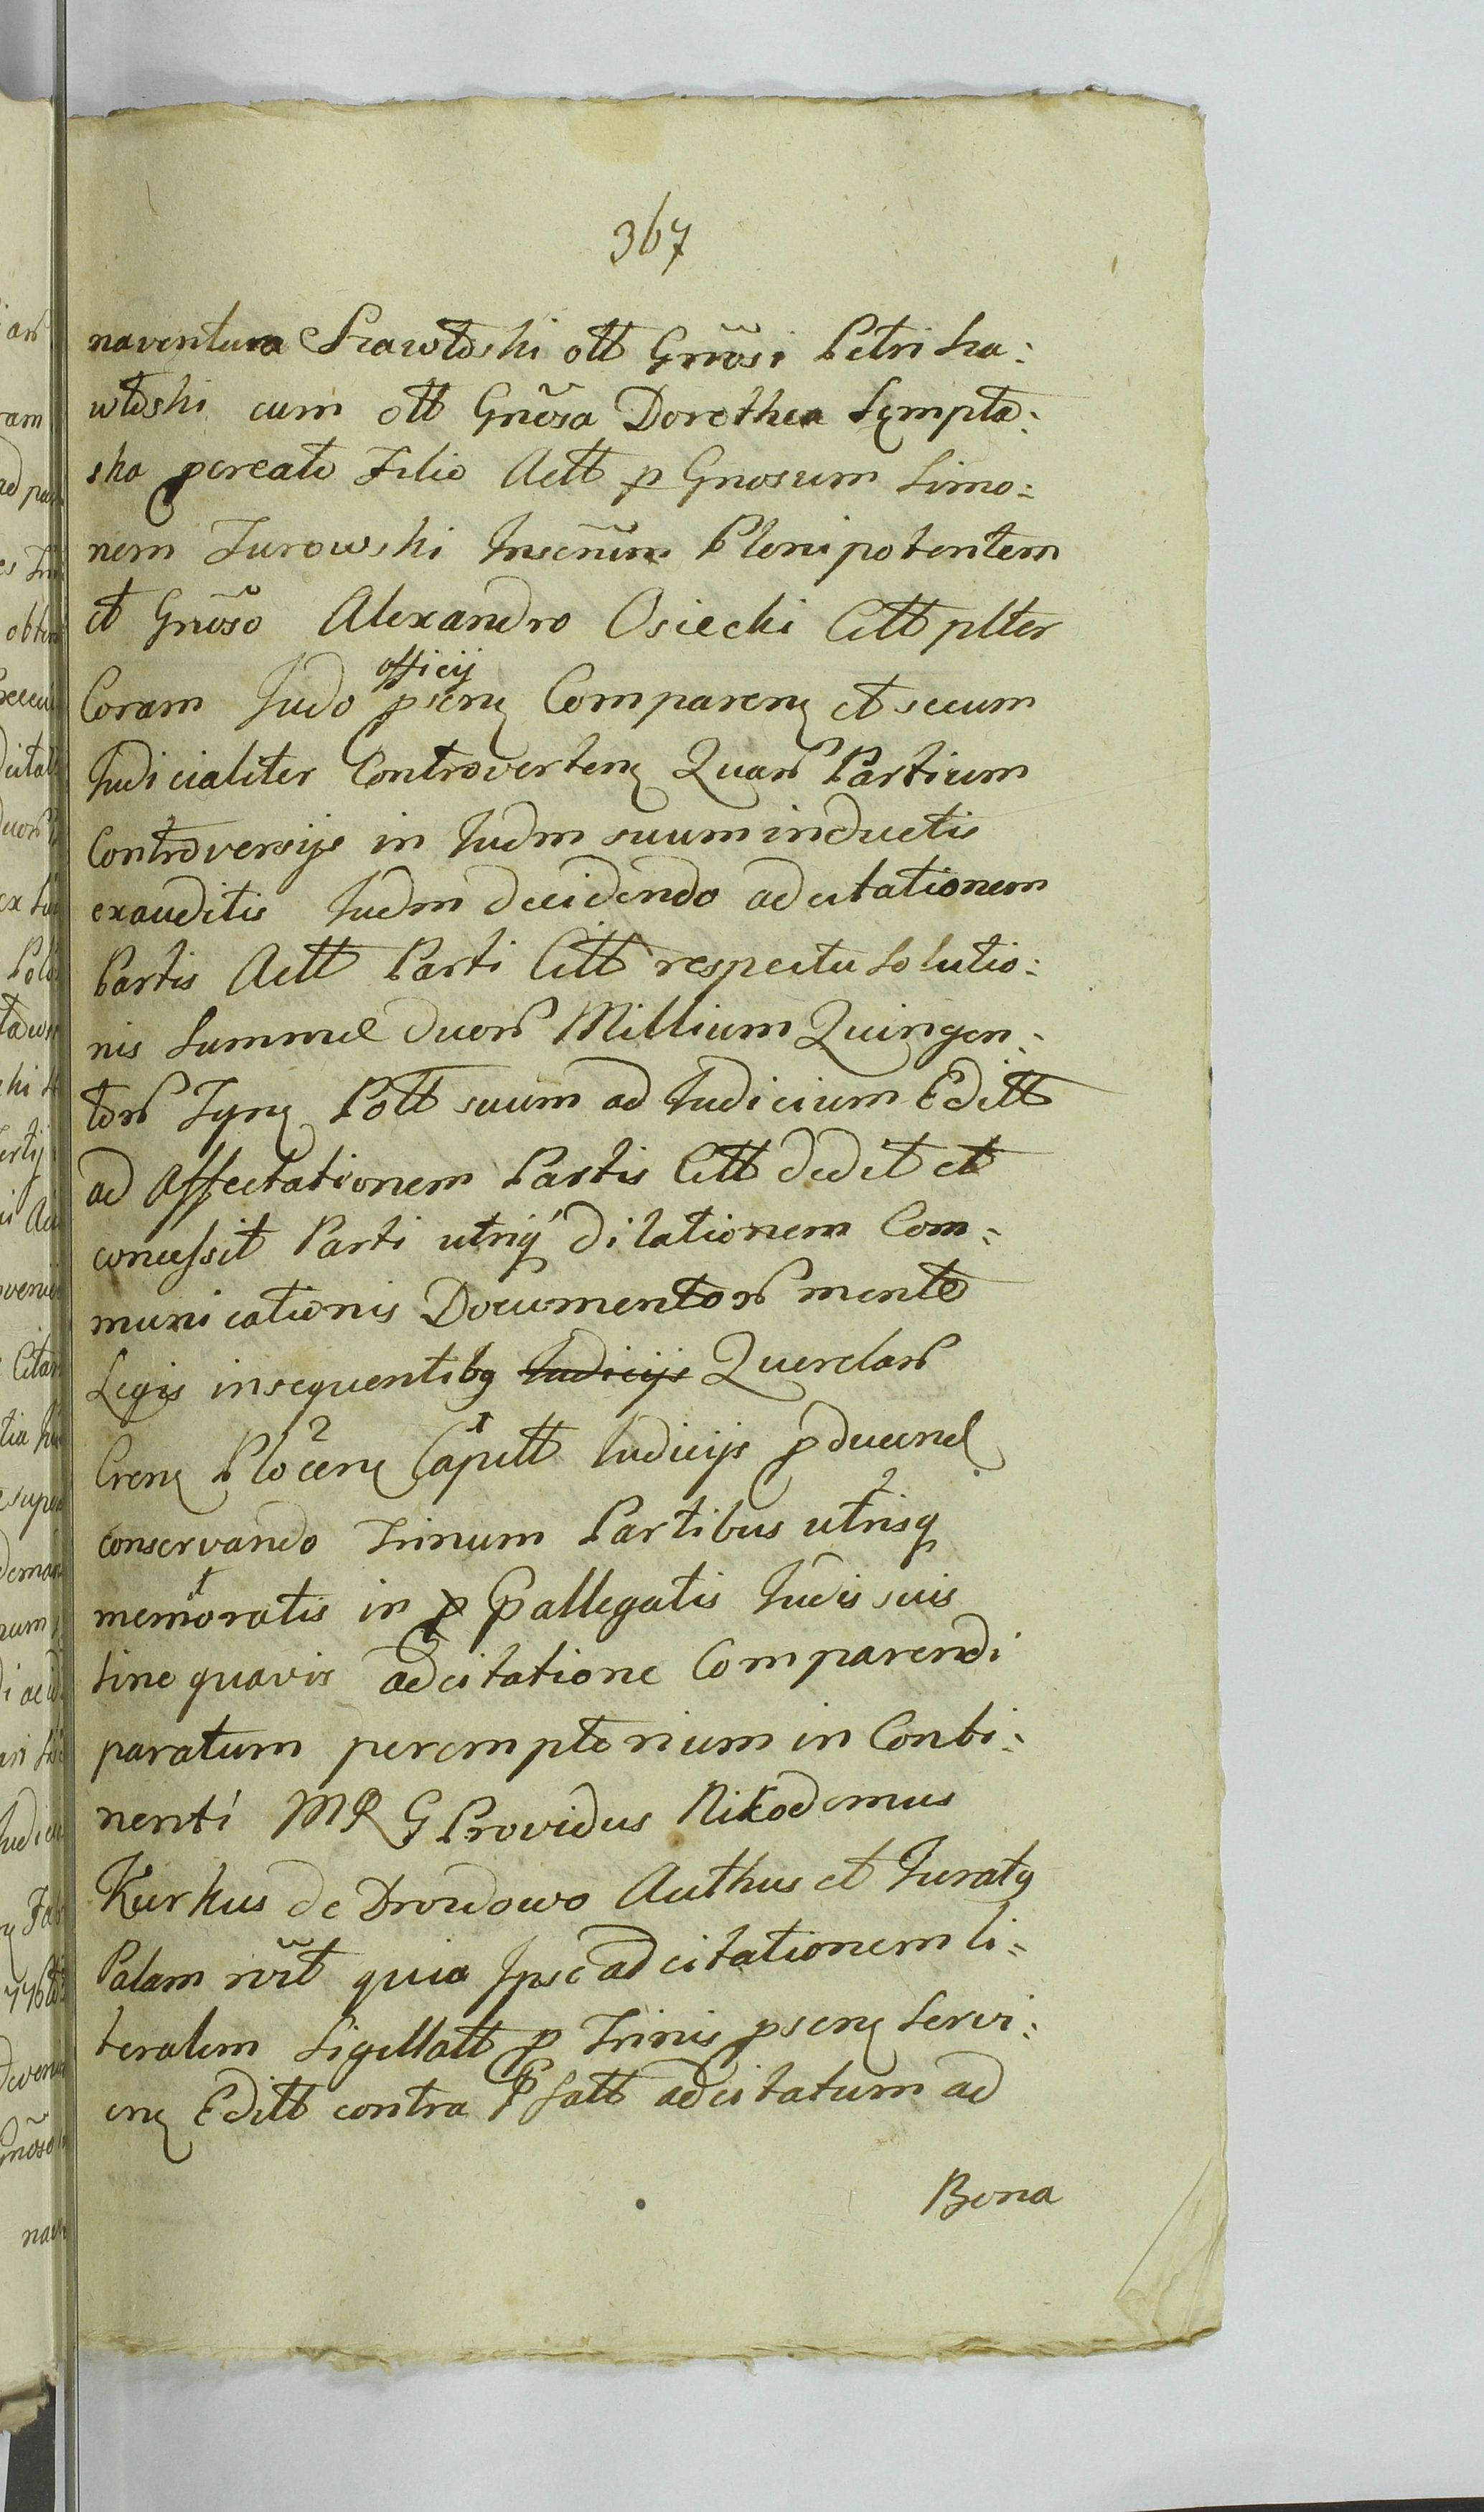 367
naventura Srawłoski ott Gnosi Petri Sra:
włoski cum ott Gnosa Dorothea Lempic:
ska pcreato Filio Actt p Gnosum Simo:
nem Turowski Inscrum Plenipotentem
et Gnoso Alexandro Osiecki Citt plter
officij
Coram Judo psenq Comparenq et secum
Judicialiter Controvertenq Quarū Partium
Controversijs in Judm suum inductis
exauditis Judm decidendo adcitationem
Partis Actt Parti Citt respectu Solutio:
nis Summæ duorū Millium Quingen:
torū Tynq Poltt suum ad Judicium Editt
ad affectationem Partis Citt dedit et
concessit Parti utriq dilationem Com:
municationis Documentorū mente
Legis insequentibq Judicijs Querelarū
Crenq Plocenq Capitt Judicijs pducendæ
conservando Trinum Partibus utrisq
memoratis in p Pallegatis Judis suis
sine quavis adcitatione Comparendi
paratum peremptorium in Conti:
nenti MR G Providus Nikodemus
Kurkus de Drozdowo Authus et Juratq
Palam nrit quia Ipse adcitationem li:
teralem Sigillatt p Trinis psenq Servi:
enq Editt contra Psatt adcitatum ad
Bona